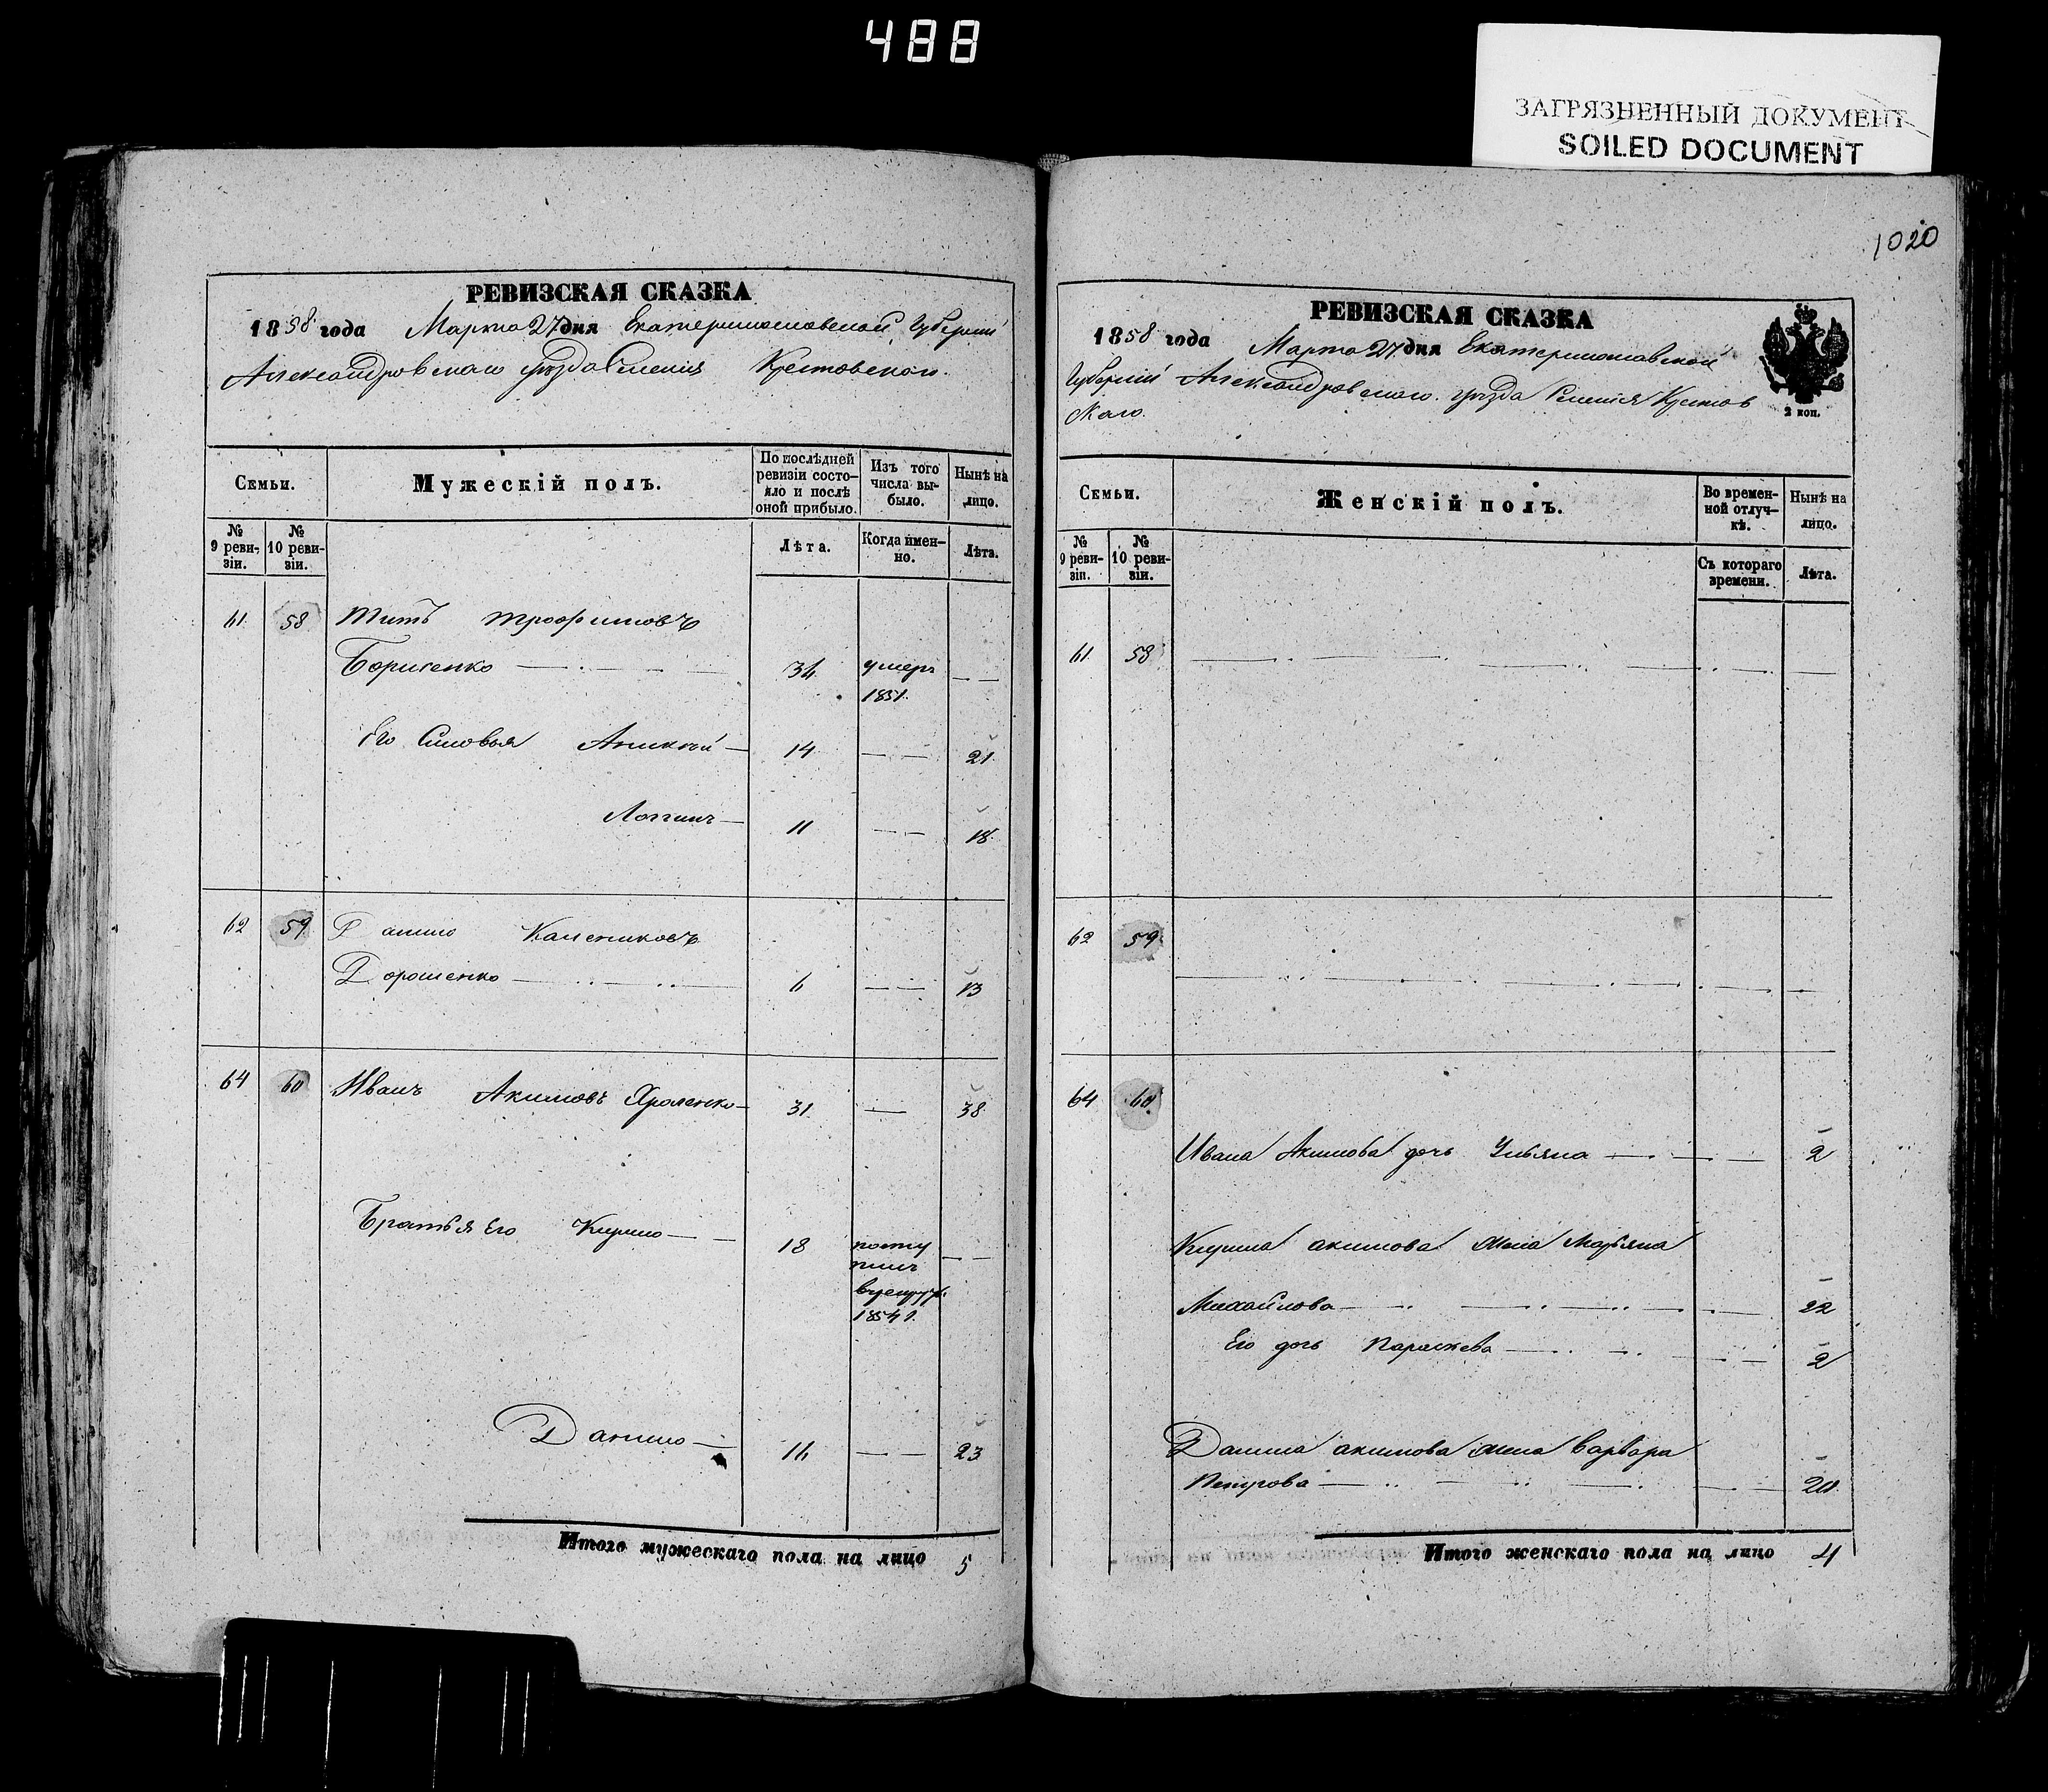 488
ЗАГРЯЗНЕННЫЙ ДОКУМЕНТ
SOILED DOCUMENT
РЕВИЗСКАЯ СКАЗКА
1858 года Марта 27 дня Екатеринославской Губернии
Александровскаго уѣзда Селенія Крестовскаго.
Семьи.
Мужескій полъ.
По послѣдней ревизіи состояло и послѣ оной прибыло.
Изъ того числа выбыло.
Нынѣ на лицо.
№ 9 ревизіи.
№ 10 ревизіи.
Лѣта.
Когда именно.
Лѣта.
61 58 Титъ Трофимовъ
Борисенко 34 умеръ
1851.
Его Сыновья Аникій 14 21
Логинъ 11 18
62 59 Данило Калениковъ
Дорошенко 6 13
64 60 Иванъ Акимовъ Хроленко 31 38
Братья Его Кирило 18 посту
пилъ
1854
Данило 16 23
Итого мужескаго пола на лицо 5
1020
РЕВИЗСКАЯ СКАЗКА
1858 года Марта 27 дня Екатеринославской
Губерніи Александровскаго уѣзда Селенія Крестов
скаго.
2 коп.
Семьи.
Женскій полъ.
Во временной отлучкѣ.
Нынѣ на лицо.
№ 9 ревизіи.
№ 10 ревизіи.
Съ котораго времени.
Лѣта.
61 58
62 59
64 60
Ивана Акимова дочь Ульяна 2
Кирила акимова жена Марьяна
Михайлова 22
Его дочь Параскева 2
Данила акимова жена Варвара
Петрова 20
Итого женскаго пола на лицо 4